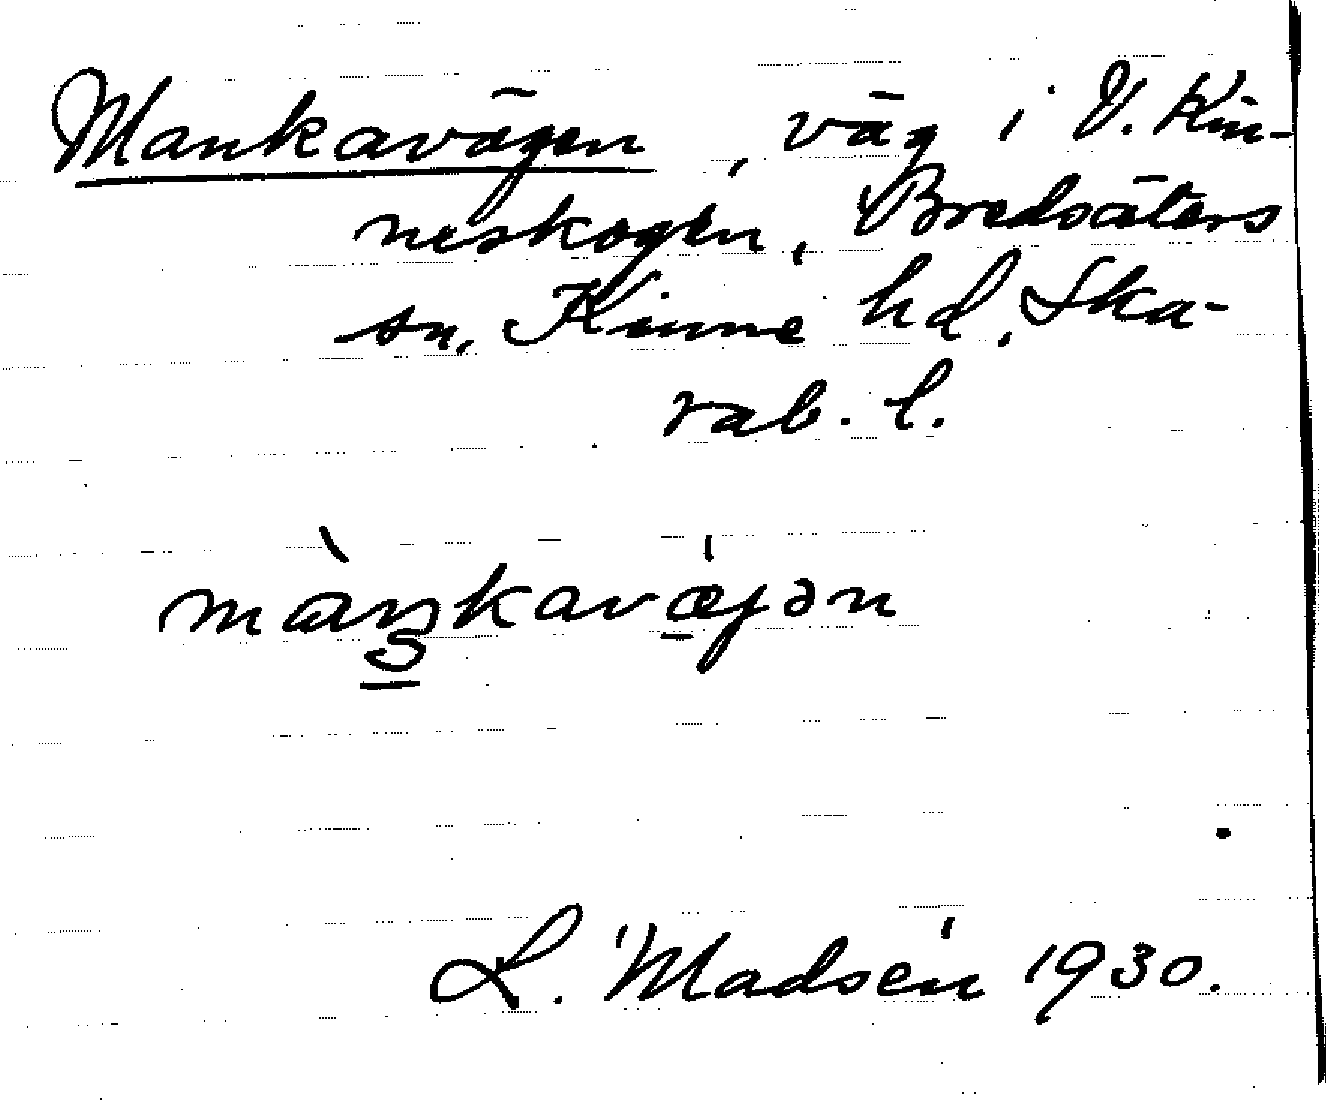 Mankavägen, väg i V. Kin-
neskogen, Bredsäters
sn, Kinne hd, Ska-
rab. l.
màŋkavæ̍jən
L. Madsén 1930.